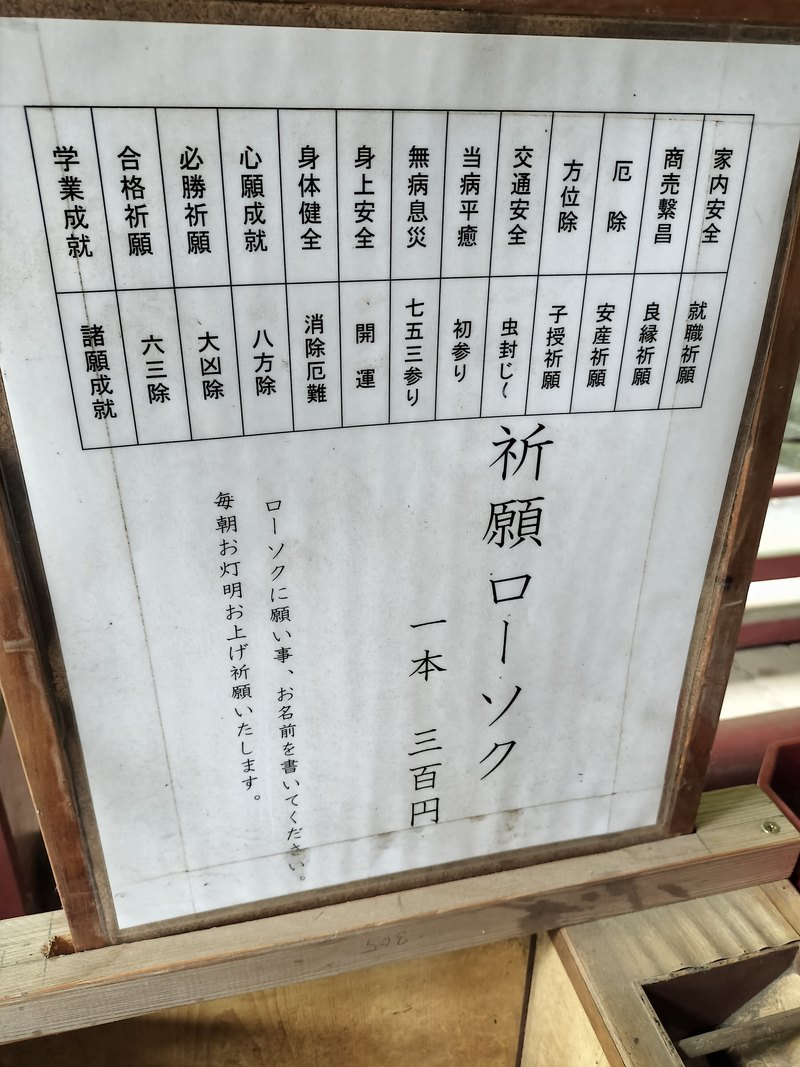 家内安全
商売繫昌
厄除
方位除
交通安全
当病平癒
無病息災
身上安全
身体健全
心願成就
必勝祈願
合格祈願
学業成就
就職祈願
良縁祈願
安産祈願
子授祈願
虫封じ〜
初参り
七五三参り
開運
消除厄難
八方除
大凶除
六三除
諸願成就
祈願ローソク
一本 三百円
ローソクに願い事、お名前を書いてください。
毎朝お灯明お上げ祈願いたします。